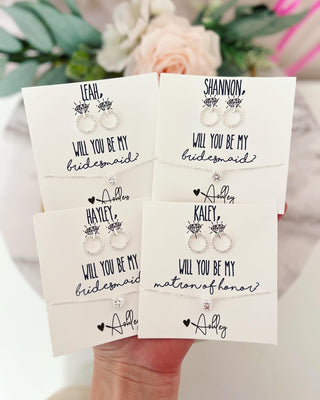 LEAH,
WILL YOU BE MY
bridesmaid?
Ashley
SHANNON,
WILL YOU BE MY
bridesmaid?
Ashley
HAYLEY,
WILL YOU BE MY
bridesmaid?
Ashley
KALEY,
WILL YOU BE MY
matron of honor?
Ashley